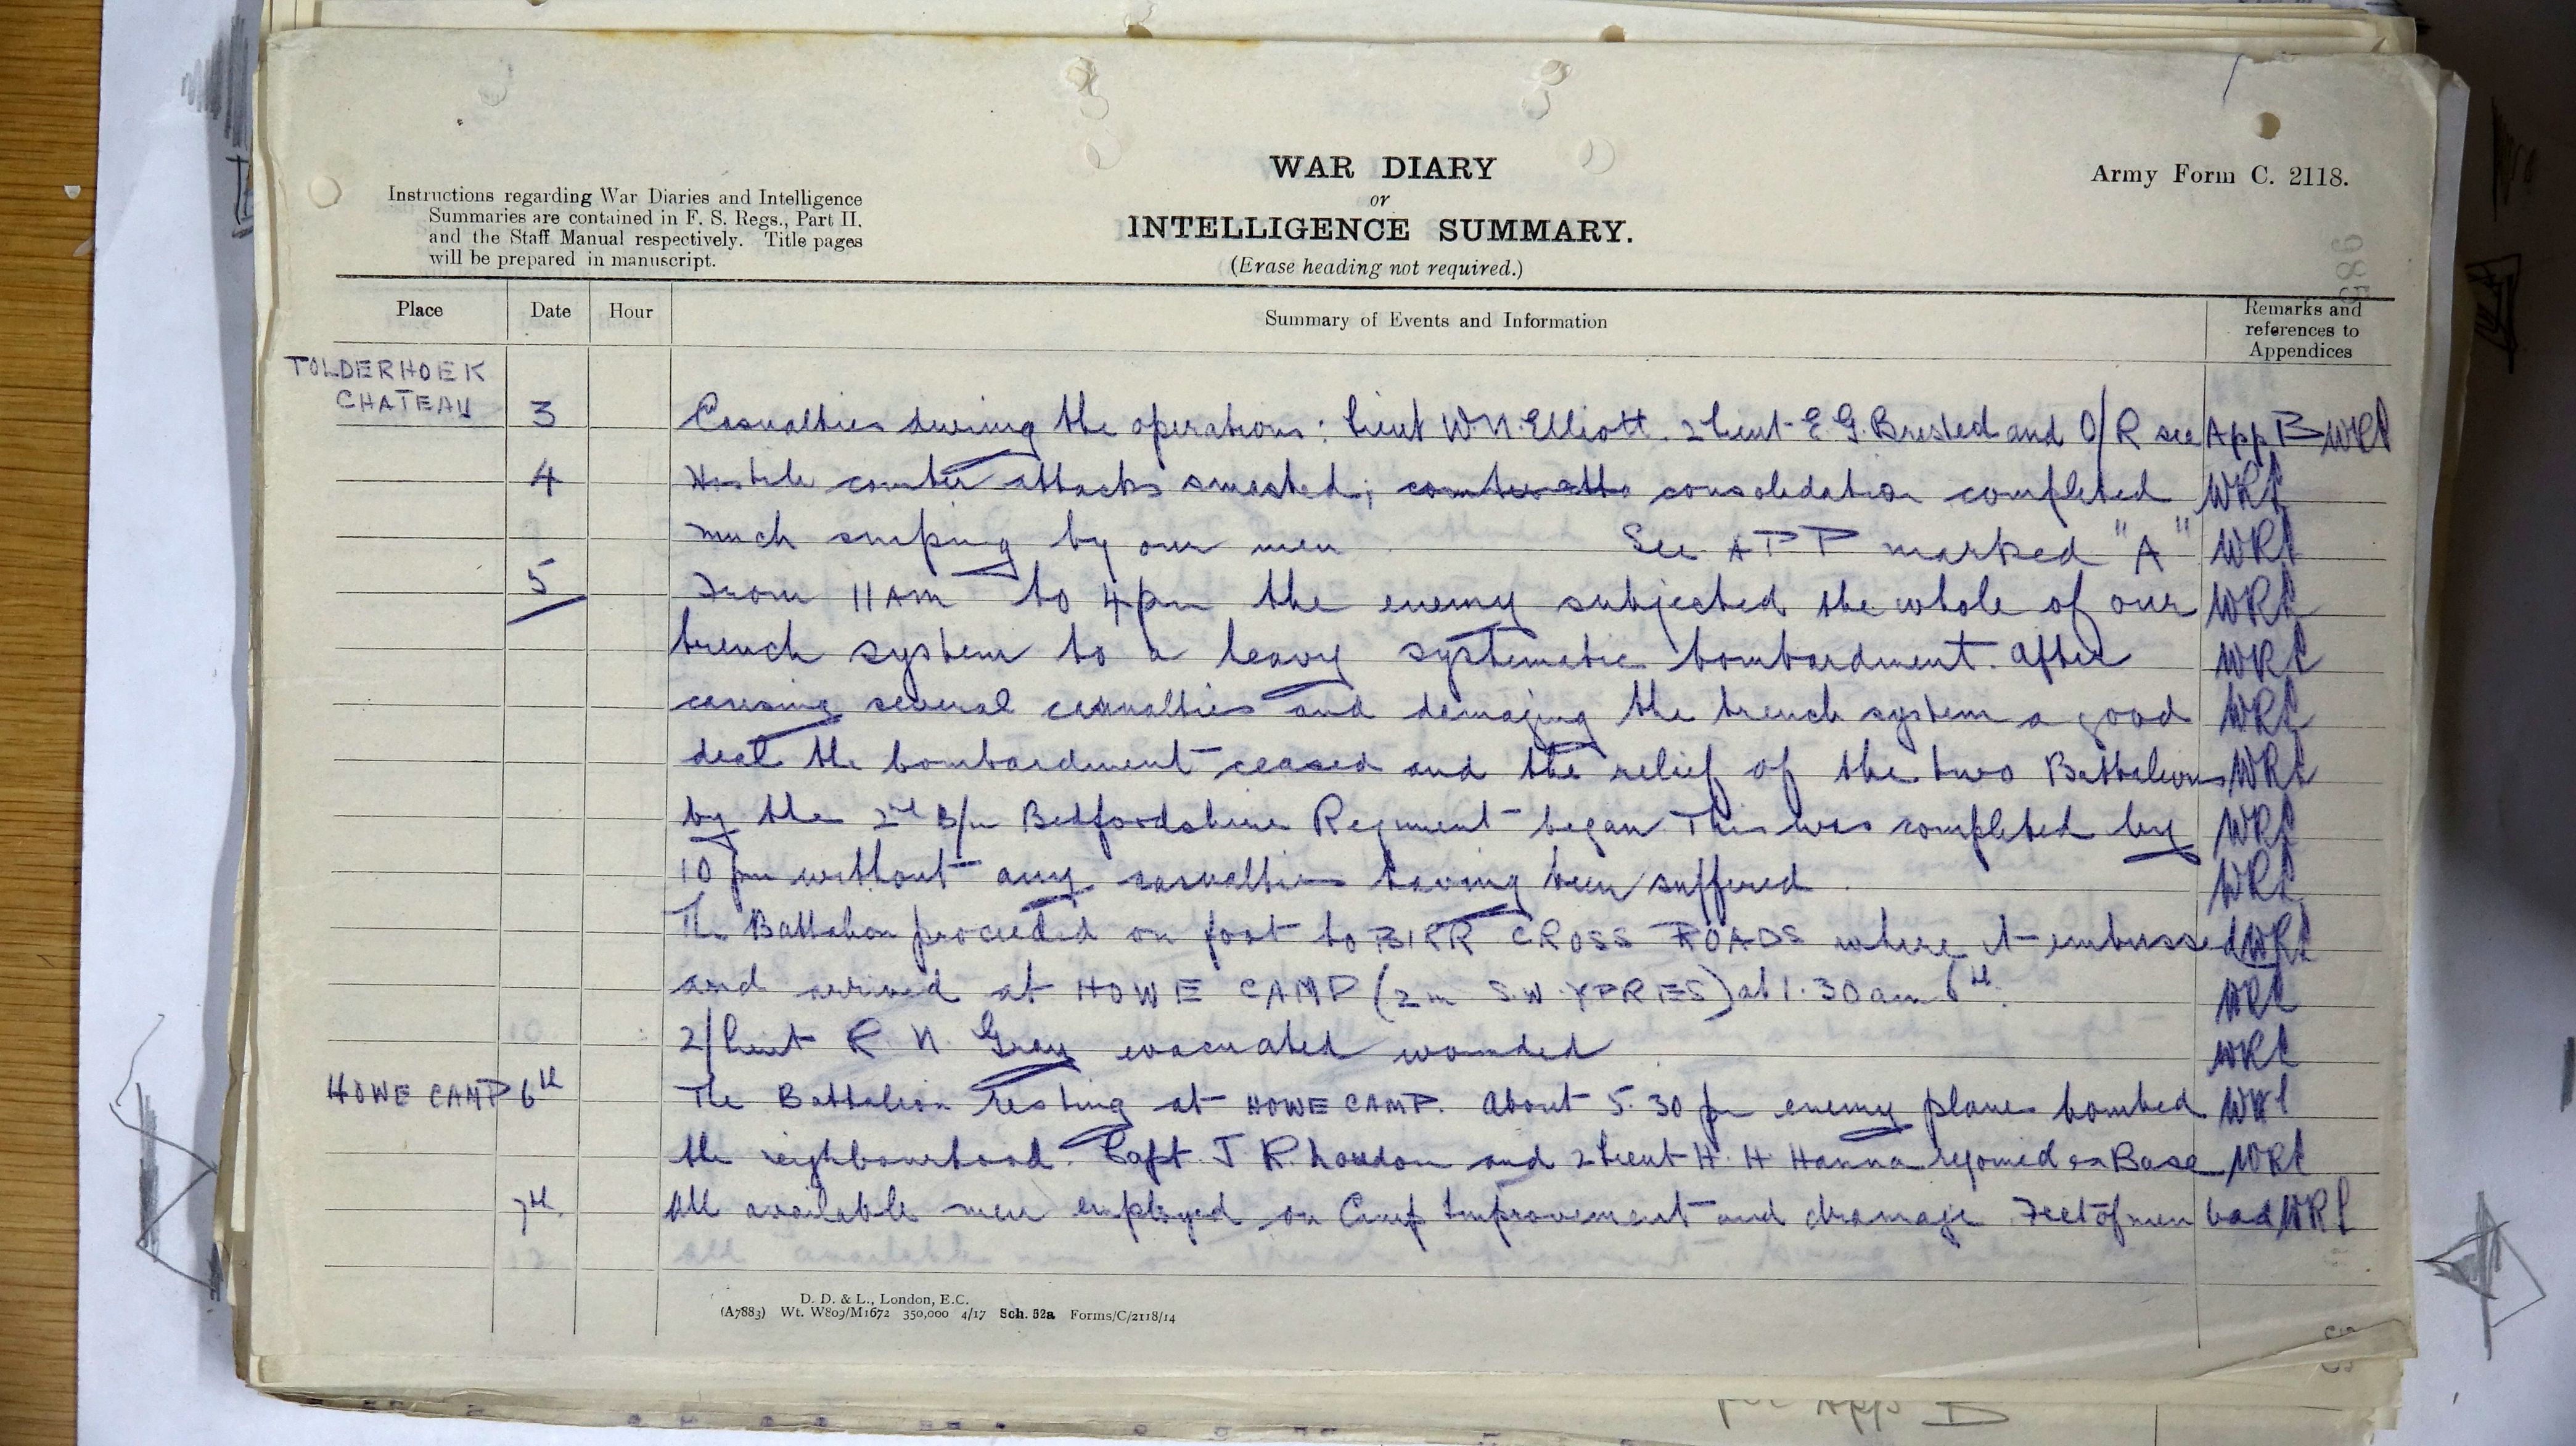 WAR DIARY
or
INTELLIGENCE SUMMARY.
(Erase heading not required.)
Army Form C. 2118.
Instructions regarding War Diaries and Intelligence
Summaries are contained in F. S. Regs., Part II.
and the Staff Manual respectively. Title pages
will be prepared in manuscript.
Place Date Hour Summary of Events and Information Remarks and
references to
Appendices
TOLDERHOEK
CHATEAU 3 Casualties during the operations: Lieut W N. Elliott. 2 Lieut E. G. Brested and O/R see App B WRL
4 Hostile counter attacks smashed; counter atta consolidation completed WRL
much sniping by our men. See APP marked "A" WRL
5 From 11 AM to 4 pm the enemy subjected the whole of our WRL
trench system to a heavy systematic bombardment. After WRL
causing several casualties and damaging the trench system a good WRL
deal the bombardment ceased and the relief of the two Battalions WRL
by the 2nd B/n Bedfordshire Regiment began. This was completed by WRL
10 pm without any casualties having been suffered. WRL
The Battalion proceeded on foot to BIRR CROSS ROADS where it embussed WRL
and arrived at HOWE CAMP (2m S.W. YPRES) at 1.30 am 6th. WRL
2/Lieut R. N. Gray evacuated wounded WRL
HOWE CAMP 6th The Battalion resting at HOWE CAMP. About 5.30 pm enemy planes bombed WRL
the neighbourhood. Capt. J R. Loudon and 2 Lieut H. H. Hanna rejoined ex Base WRL
7th. All available men employed on Camp Improvement and drainage. Feet of men bad WRL
D. D. & L., London, E.C.
(A7883) Wt. W809/M1672 350,000 4/17 Sch. 52a Forms/C/2118/14
App B